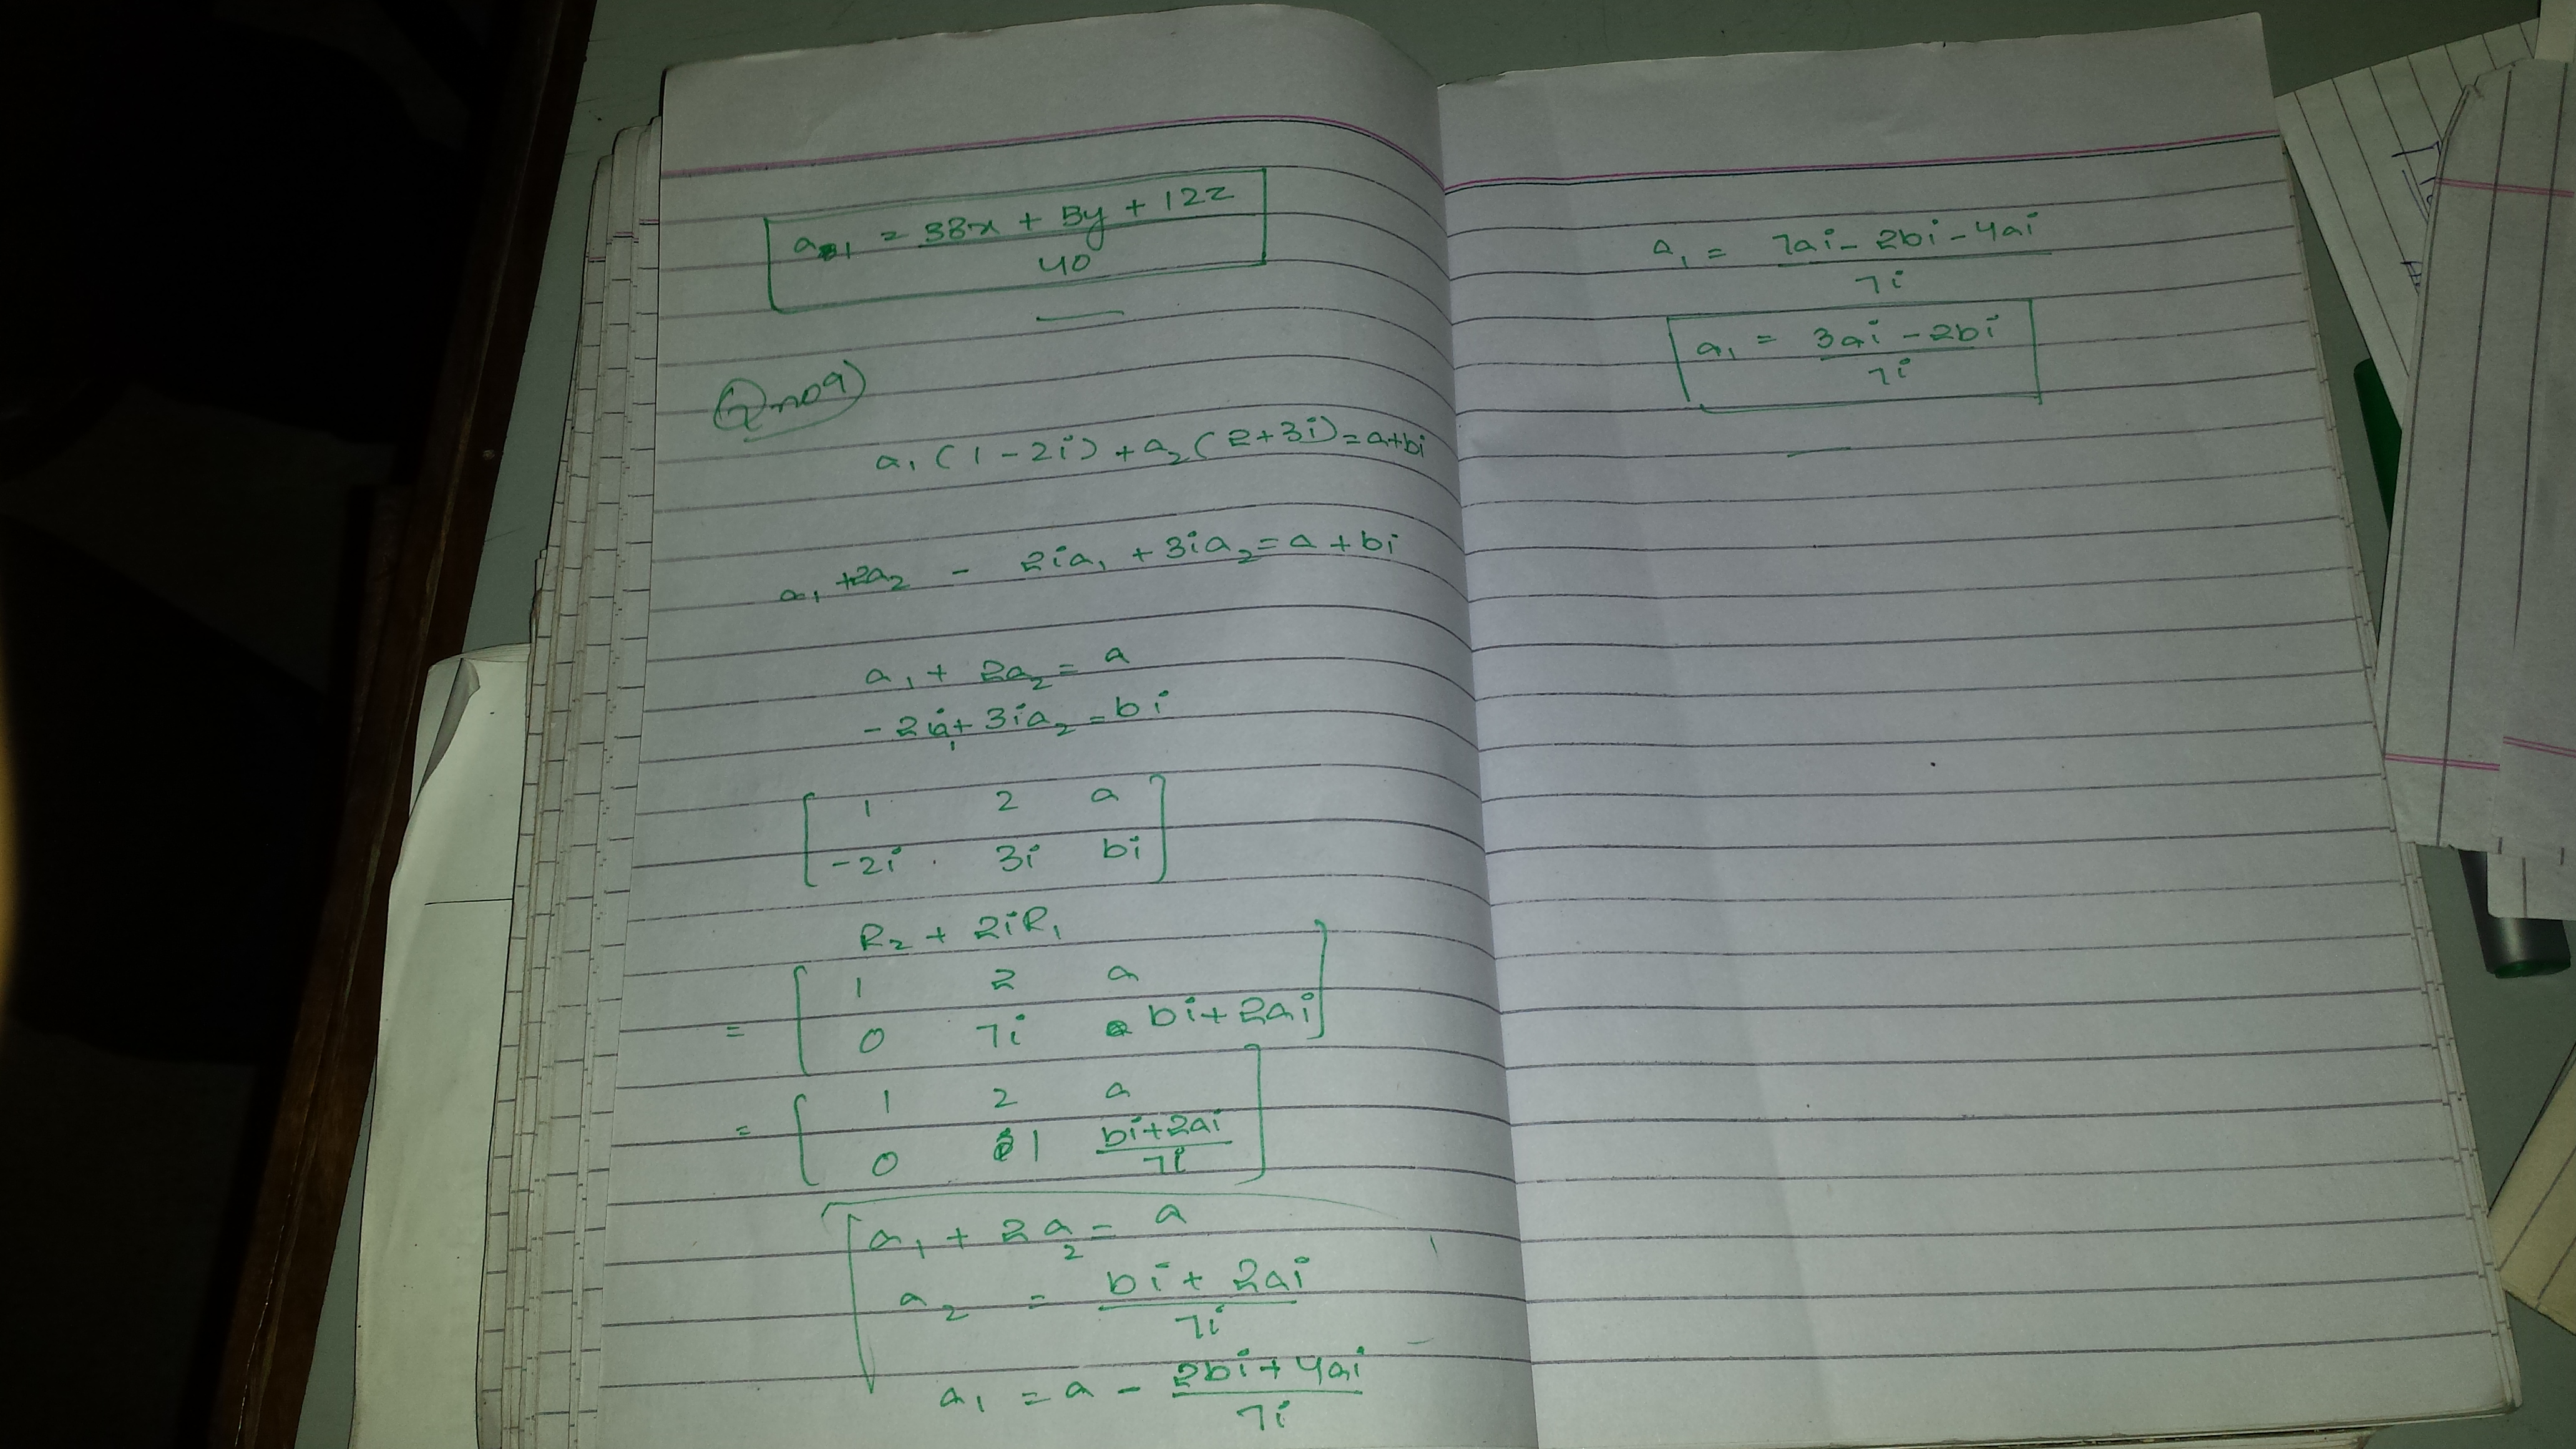 a1 = 38x + 5y + 12z
40
Q no 9
a1 (1 - 2i) + a2 (2+3i) = a+bi
a1 + 2a2 - 2ia1 + 3ia2 = a + bi
a1 + 2a2 = a
- 2ia1 + 3ia2 = bi
1 2 a
-2i 3i bi
R2 + 2iR1
= 1 2 a
0 7i bi+2ai
= 1 2 a
0 1 bi+2ai
7i
a1 + 2a2 = a
a2 = bi + 2ai
7i
a1 = a - 2bi+4ai
7i
a1 = 7ai - 2bi - 4ai
7i
a1 = 3ai - 2bi
7i